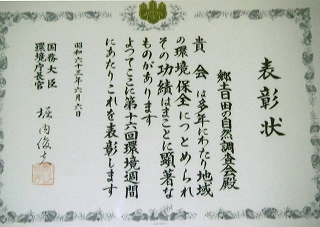 表彰状
郷土日田の自然調査会殿
貴会は多年にわたり地域
の環境保全につとめられ
その功績はまことに顕著な
ものがあります
よってここに第十六回環境週間
にあたりこれを表彰します
昭和六十三年六月六日
国務大臣
環境庁長官
堀内俊夫